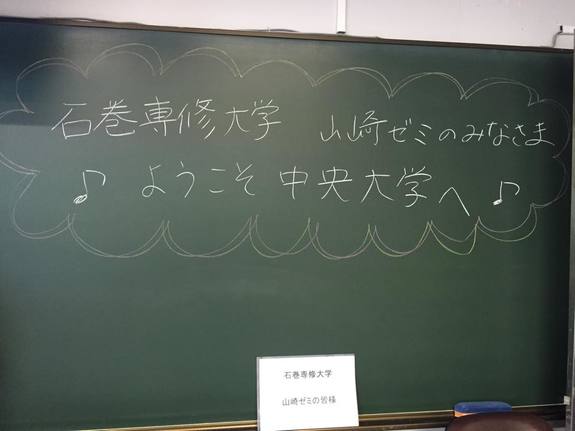 石巻専修大学 山崎ゼミのみなさま
♪ ようこそ 中央大学へ ♪
石巻専修大学
山崎ゼミの皆様